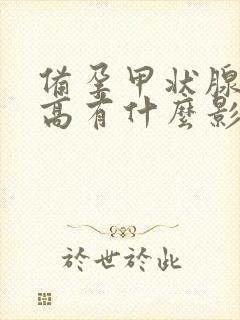 備孕甲狀腺
高有什麼影
於世於此